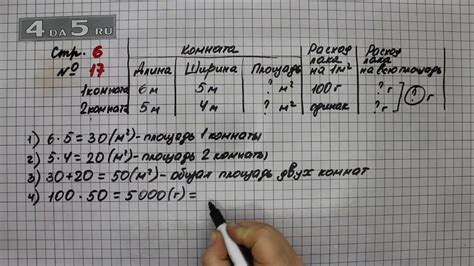 4DA5.RU
Стр. 6
№ 17
Комната
Длина Ширина Площадь Расход лака на 1м² Расход лака на всю площадь
1 комната 6 м 5 м ? м² 100 г ? г
2 комната 5 м 4 м ? м² одинак ? г ? г
1) 6 · 5 = 30 (м²) - площадь 1 комнаты
2) 5 · 4 = 20 (м²) - площадь 2 комнаты
3) 30 + 20 = 50 (м²) - общая площадь двух комнат
4) 100 · 50 = 5000 (г) =